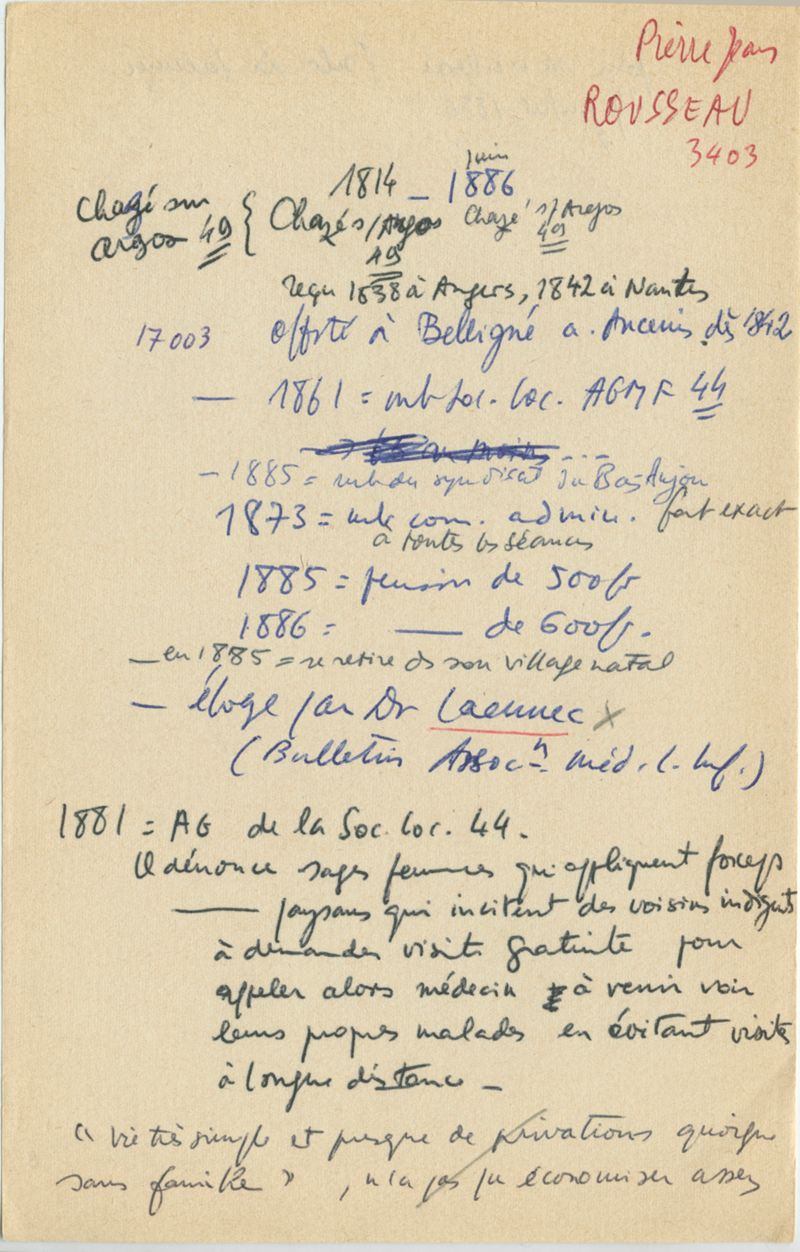 Pierre Jean
ROUSSEAU
3403
juin
1814 – 1886
Chazé sur
argos 49 { Chazé s/Argos
49
Chazé s/Argos
49
reçu 1838 à Angers, 1842 à Nantes
17003 offsté à Belligné a. Ancenis dès 1842
— 1861 = mb Soc. loc. AGMF 44
– 1885 = mb du syndicat du Bas Anjou
1873 = mb com. admin. fort exact
à toutes les séances
1885 = pension de 500 fr
1886 = —— de 600 fr.
— en 1885 = se retire ds son village natal
— éloge par Dr Laennec x
(Bulletin Assoc.n méd. L. Inf.)
1881 = AG de la Soc. loc. 44.
Il dénonce sages femmes qui appliquent forceps
—— paysans qui incitent des voisins indigents
à demander visite gratuite pour
appeler alors médecin à venir voir
leurs propres malades en évitant visites
à longue distance –
" vie très simple et presque de privations quoique
sans famille " , n'a pas pu économiser assez